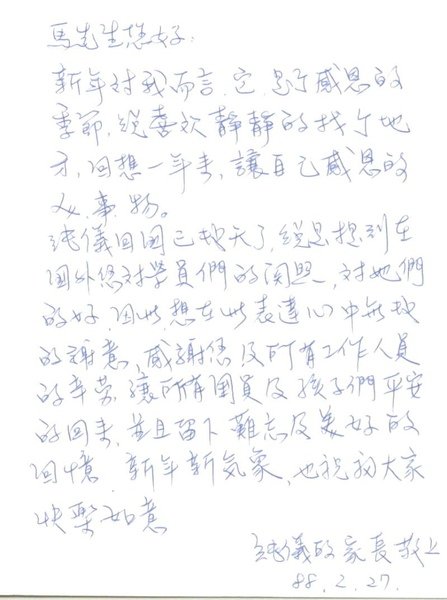 馬先生您好:
新年對我而言,它是個感恩的
季節,總喜歡靜靜的找個地
方,回想一年來,讓自己感恩的
人、事、物。
純儀回國已幾天了,總是想到在
國外您對學員們的關照,對她們
的好,因此,想在此表達心中無數
的謝意,感謝您及所有工作人員
的辛勞,讓所有團員及孩子們平安
的回來,並且留下難忘及美好的
回憶 新年新気象,也祝福大家
快樂如意
純儀的家長敬上
88.2.27.